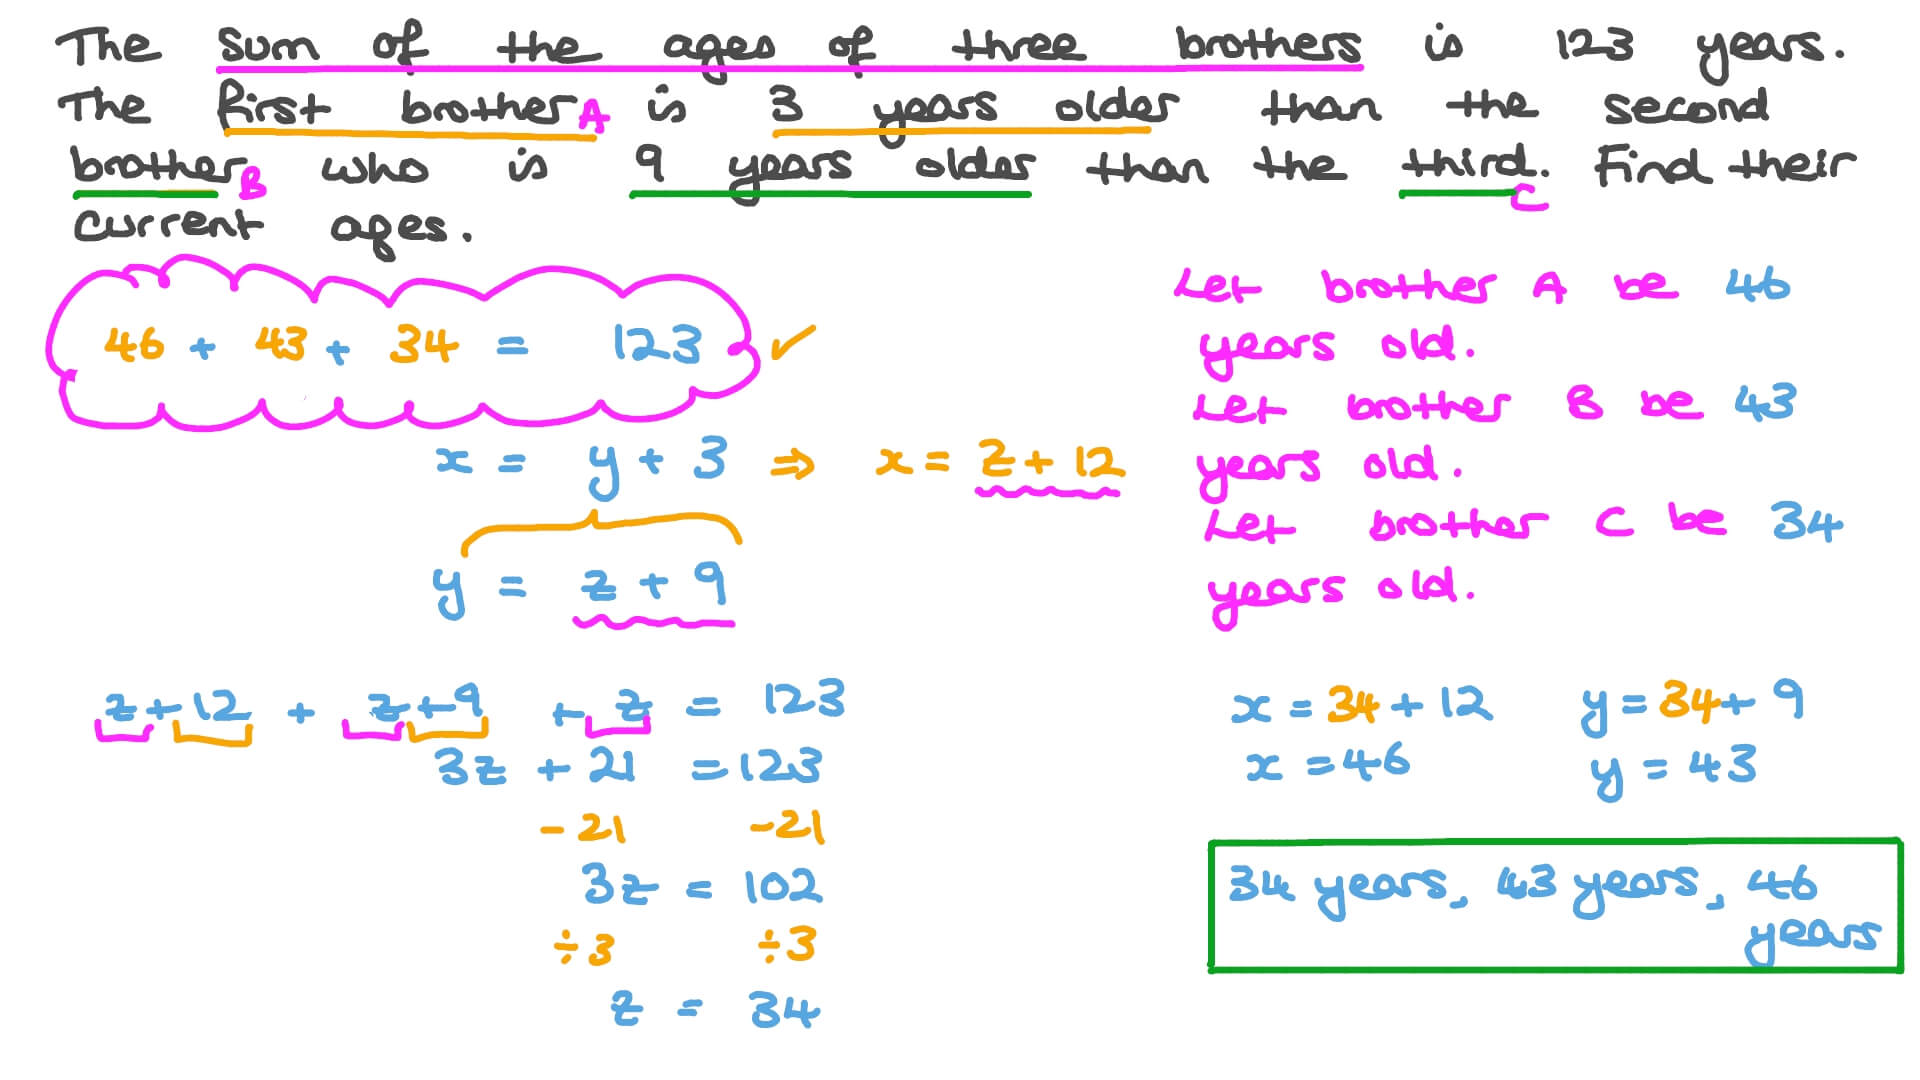 The sum of the ages of three brothers is 123 years.
The first brother A is 3 years older than the second
brother B who is 9 years older than the third. C Find their
current ages.
46 + 43 + 34 = 123 ✓
x = y + 3 ⇒ x = z + 12
y = z + 9
z + 12 + z + 9 + z = 123
3z + 21 = 123
- 21 - 21
3z = 102
÷ 3 ÷ 3
z = 34
Let brother A be 46
years old.
Let brother B be 43
years old.
Let brother C be 34
years old.
x = 34 + 12 y = 34 + 9
x = 46 y = 43
34 years, 43 years, 46
years